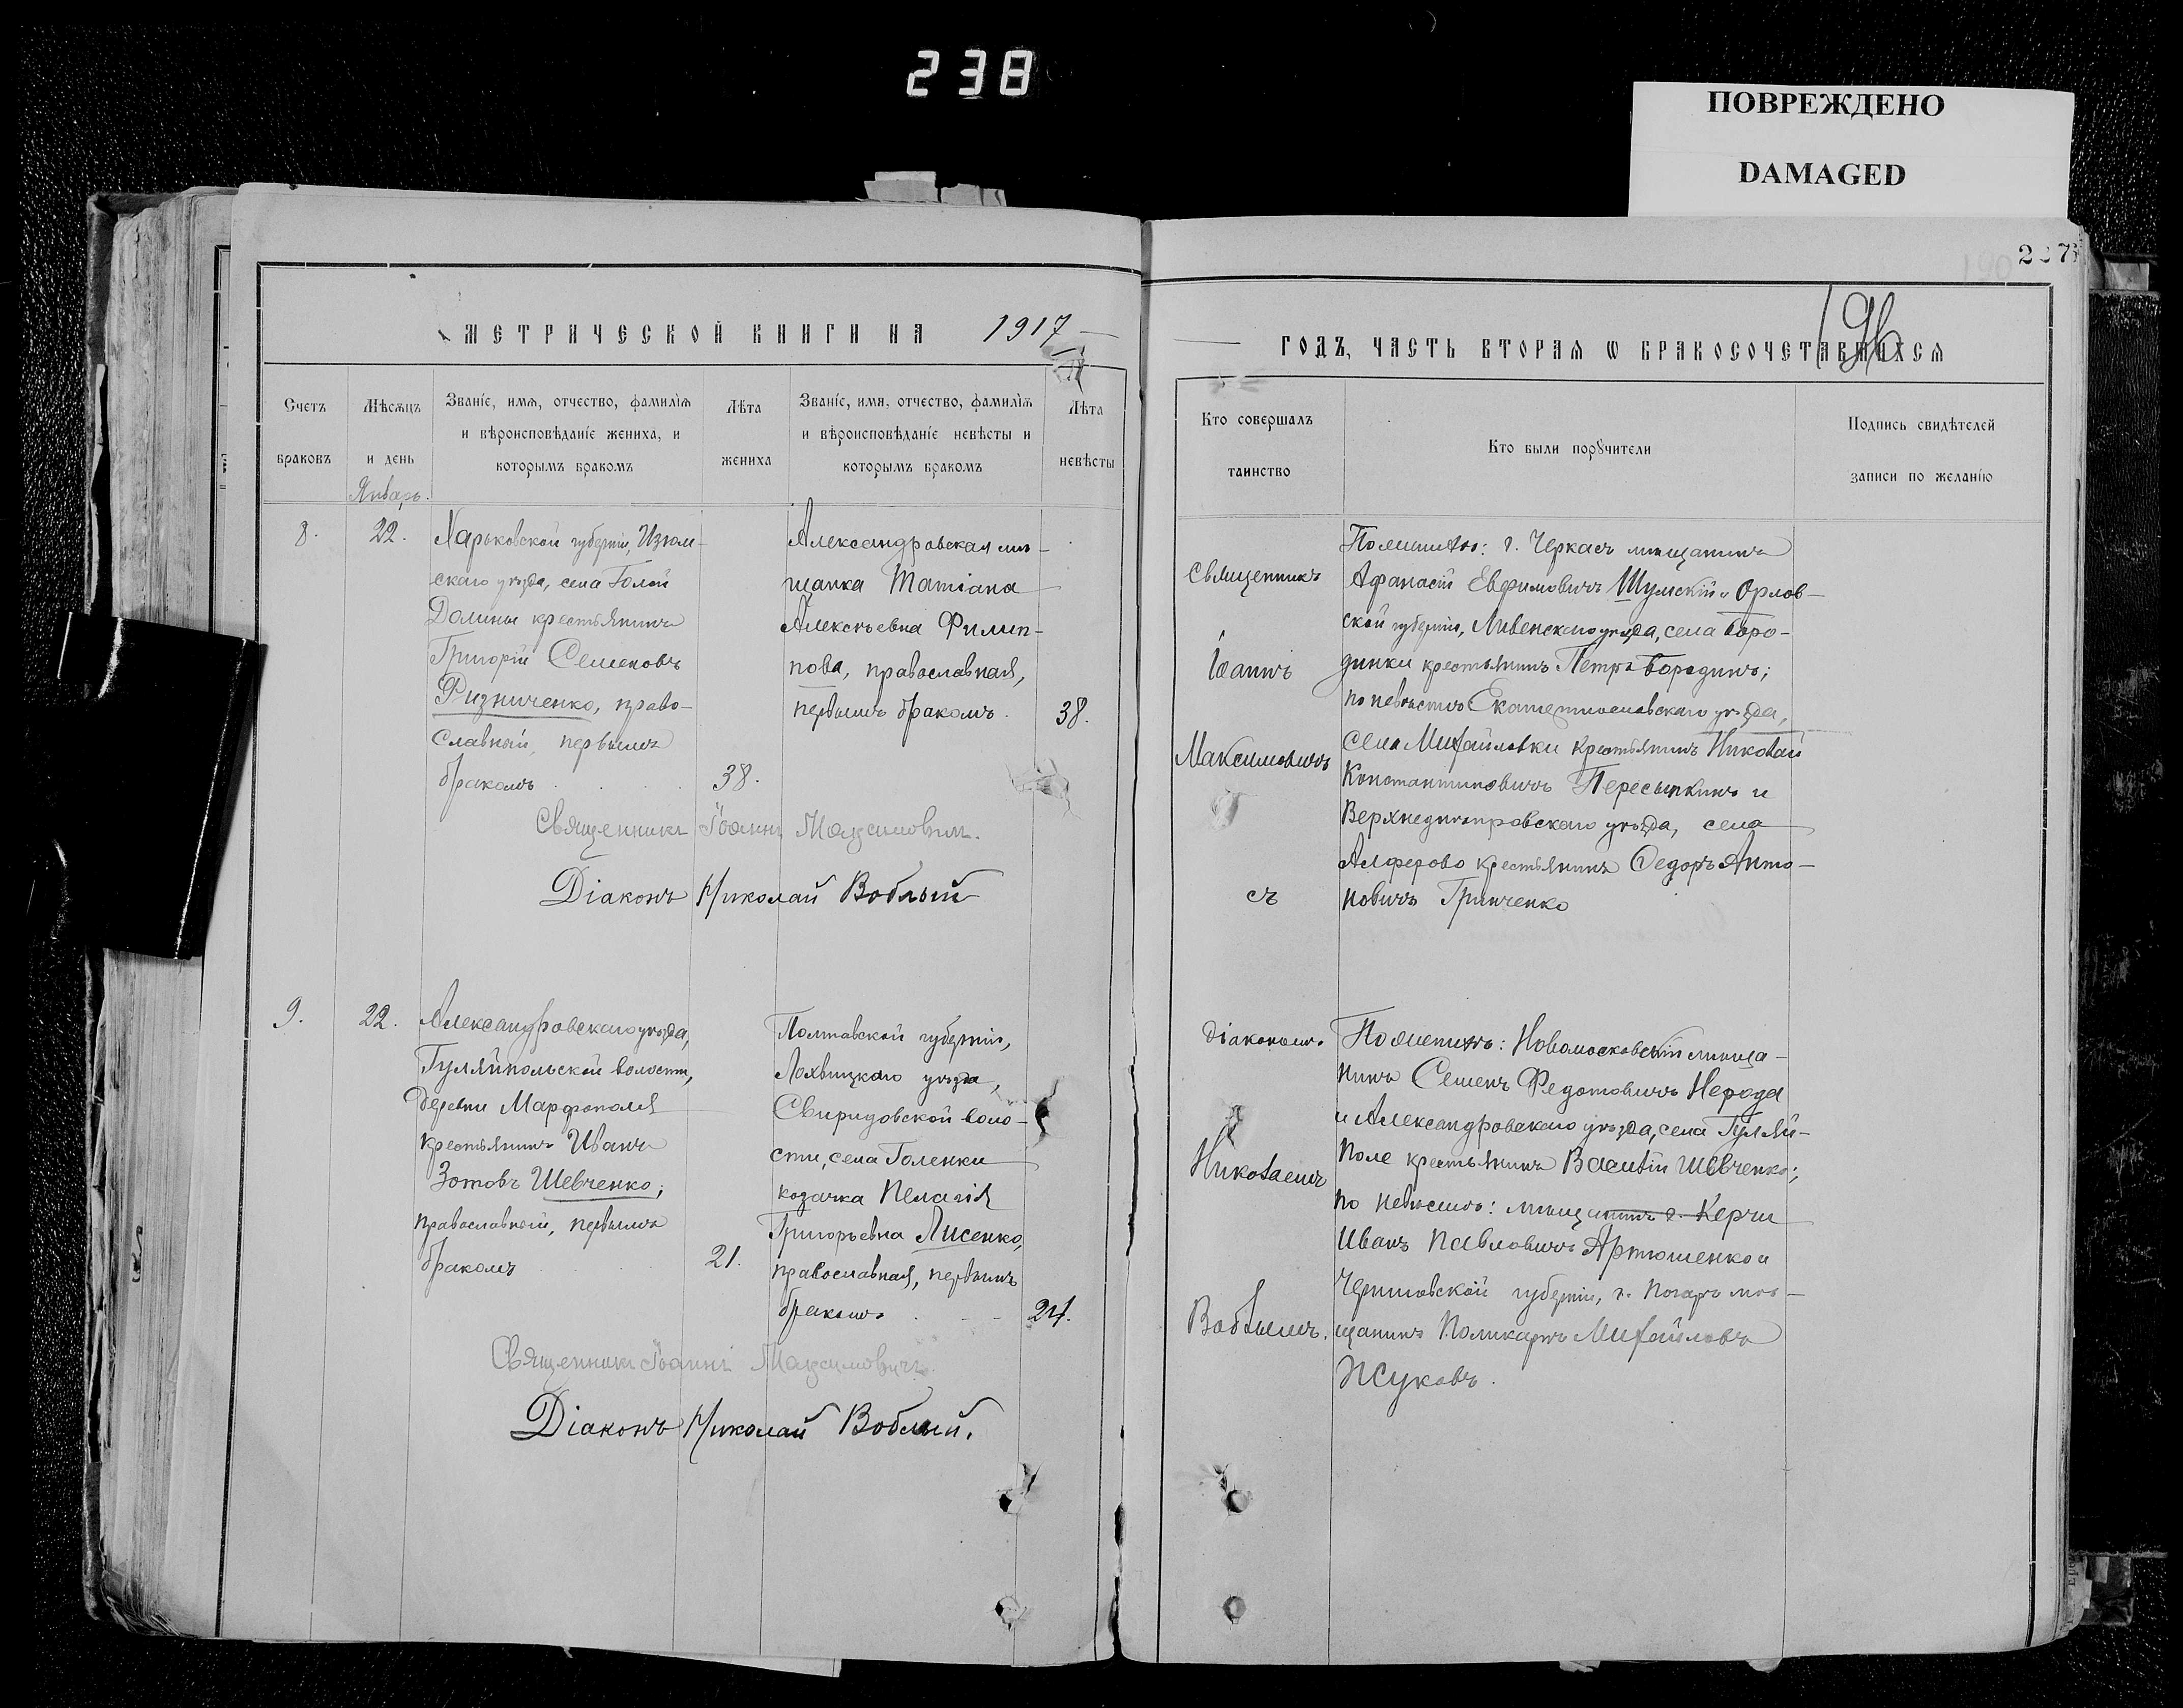 238
ПОВРЕЖДЕНО
DAMAGED
196
МЕТРИЧЕСКОЙ КНИГИ НА 1917
Счетъ браковъ
Мѣсяцъ и день
Званіе, имя, отчество, фамилія
и вѣроисповѣданіе жениха, и
которымъ бракомъ
Лѣта
жениха
Званіе, имя, отчество, фамилія
и вѣроисповѣданіе невѣсты и
которымъ бракомъ
Лѣта
невѣсты
Январь.
8.
22.
Харьковской губерніи, Изюм-
скаго уѣзда, села Голой
Долины крестьянинъ
Григорій Семеновъ
Физниченко, право-
славный, первымъ
бракомъ
38.
Александровская мѣ-
щанка Татіана
Алексѣевна Филип-
пова, православная,
первымъ бракомъ.
38.
Священникъ Іоаннъ Максимовичъ.
Діаконъ Николай Воблый
9.
22.
Александровскаго уѣзда,
Гуляйпольской волости,
деревни Марфополя
крестьянинъ Иванъ
Зотовъ Шевченко;
православный, первымъ
бракомъ
21.
Полтавской губерніи,
Лохвицкаго уѣзда,
Свиридовской воло-
сти, села Голенки
козачка Пелагія
Григорьевна Лисенко,
православная, первымъ
бракомъ
24.
Священникъ Іоаннъ Максимовичъ.
Діаконъ Николай Воблый.
ГОДЪ, ЧАСТЬ ВТОРАЯ Ѡ БРАКОСОЧЕТАВШИХСЯ
Кто совершалъ
таинство
Кто были порꙋчители
Подпись свидѣтелей
записи по желанію
Священникъ
Іоаннъ
Максимовичъ
съ
По женихѣ: г. Черкасъ мѣщанинъ
Афанасій Евфимовичъ Шумскій и Орлов-
ской губерніи, Ливенскаго уѣзда, села Боро-
динки крестьянинъ Петръ Бородинъ;
по невѣстѣ Екатеринославскаго уѣзда,
села Михайловки крестьянинъ Николай
Константиновичъ Пересыпкинъ и
Верхнеднѣпровскаго уѣзда, села
Алферово крестьянинъ Ѳедоръ Анто-
новичъ Гринченко
діакономъ
Николаемъ
Воблымъ.
По женихѣ: Новомосковскій мѣща-
нинъ Семенъ Федотовичъ Нерода
и Александровскаго уѣзда, села Гуляй-
Поле крестьянинъ Василій Шевченко;
по невѣстѣ: мѣщанинъ г. Керчи
Иванъ Павловичъ Артюшенко и
Черниговской губерніи, г. Погаръ мѣ-
щанинъ Поликарпъ Михайловъ
Жуковъ.